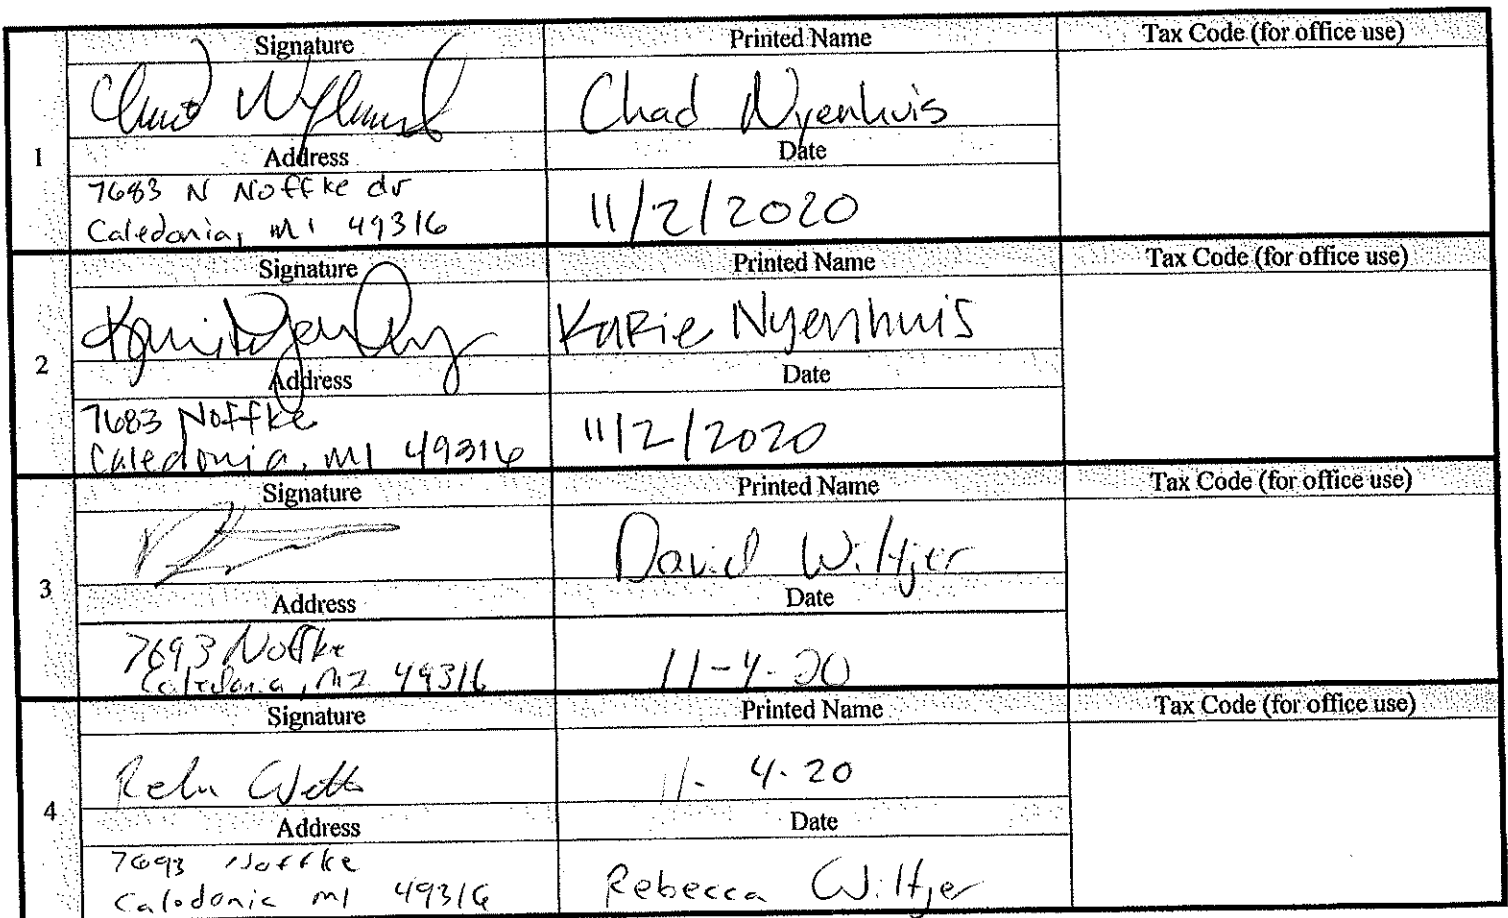 Signature Printed Name Tax Code (for office use)
Chad Nyenhuis
1
Address Date
7683 N Noffke dr
Caledonia, MI 49316
11/2/2020
Signature Printed Name Tax Code (for office use)
Karie Nyenhuis
2
Address Date
7683 Noffke
Caledonia, MI 49316
11/2/2020
Signature Printed Name Tax Code (for office use)
David Wiltjer
3
Address Date
7693 Noffke
Caledonia, MI 49316
11-4-20
Signature Printed Name Tax Code (for office use)
11-4-20
4
Address Date
7693 Noffke
Caledonia MI 49316
Rebecca Wiltjer